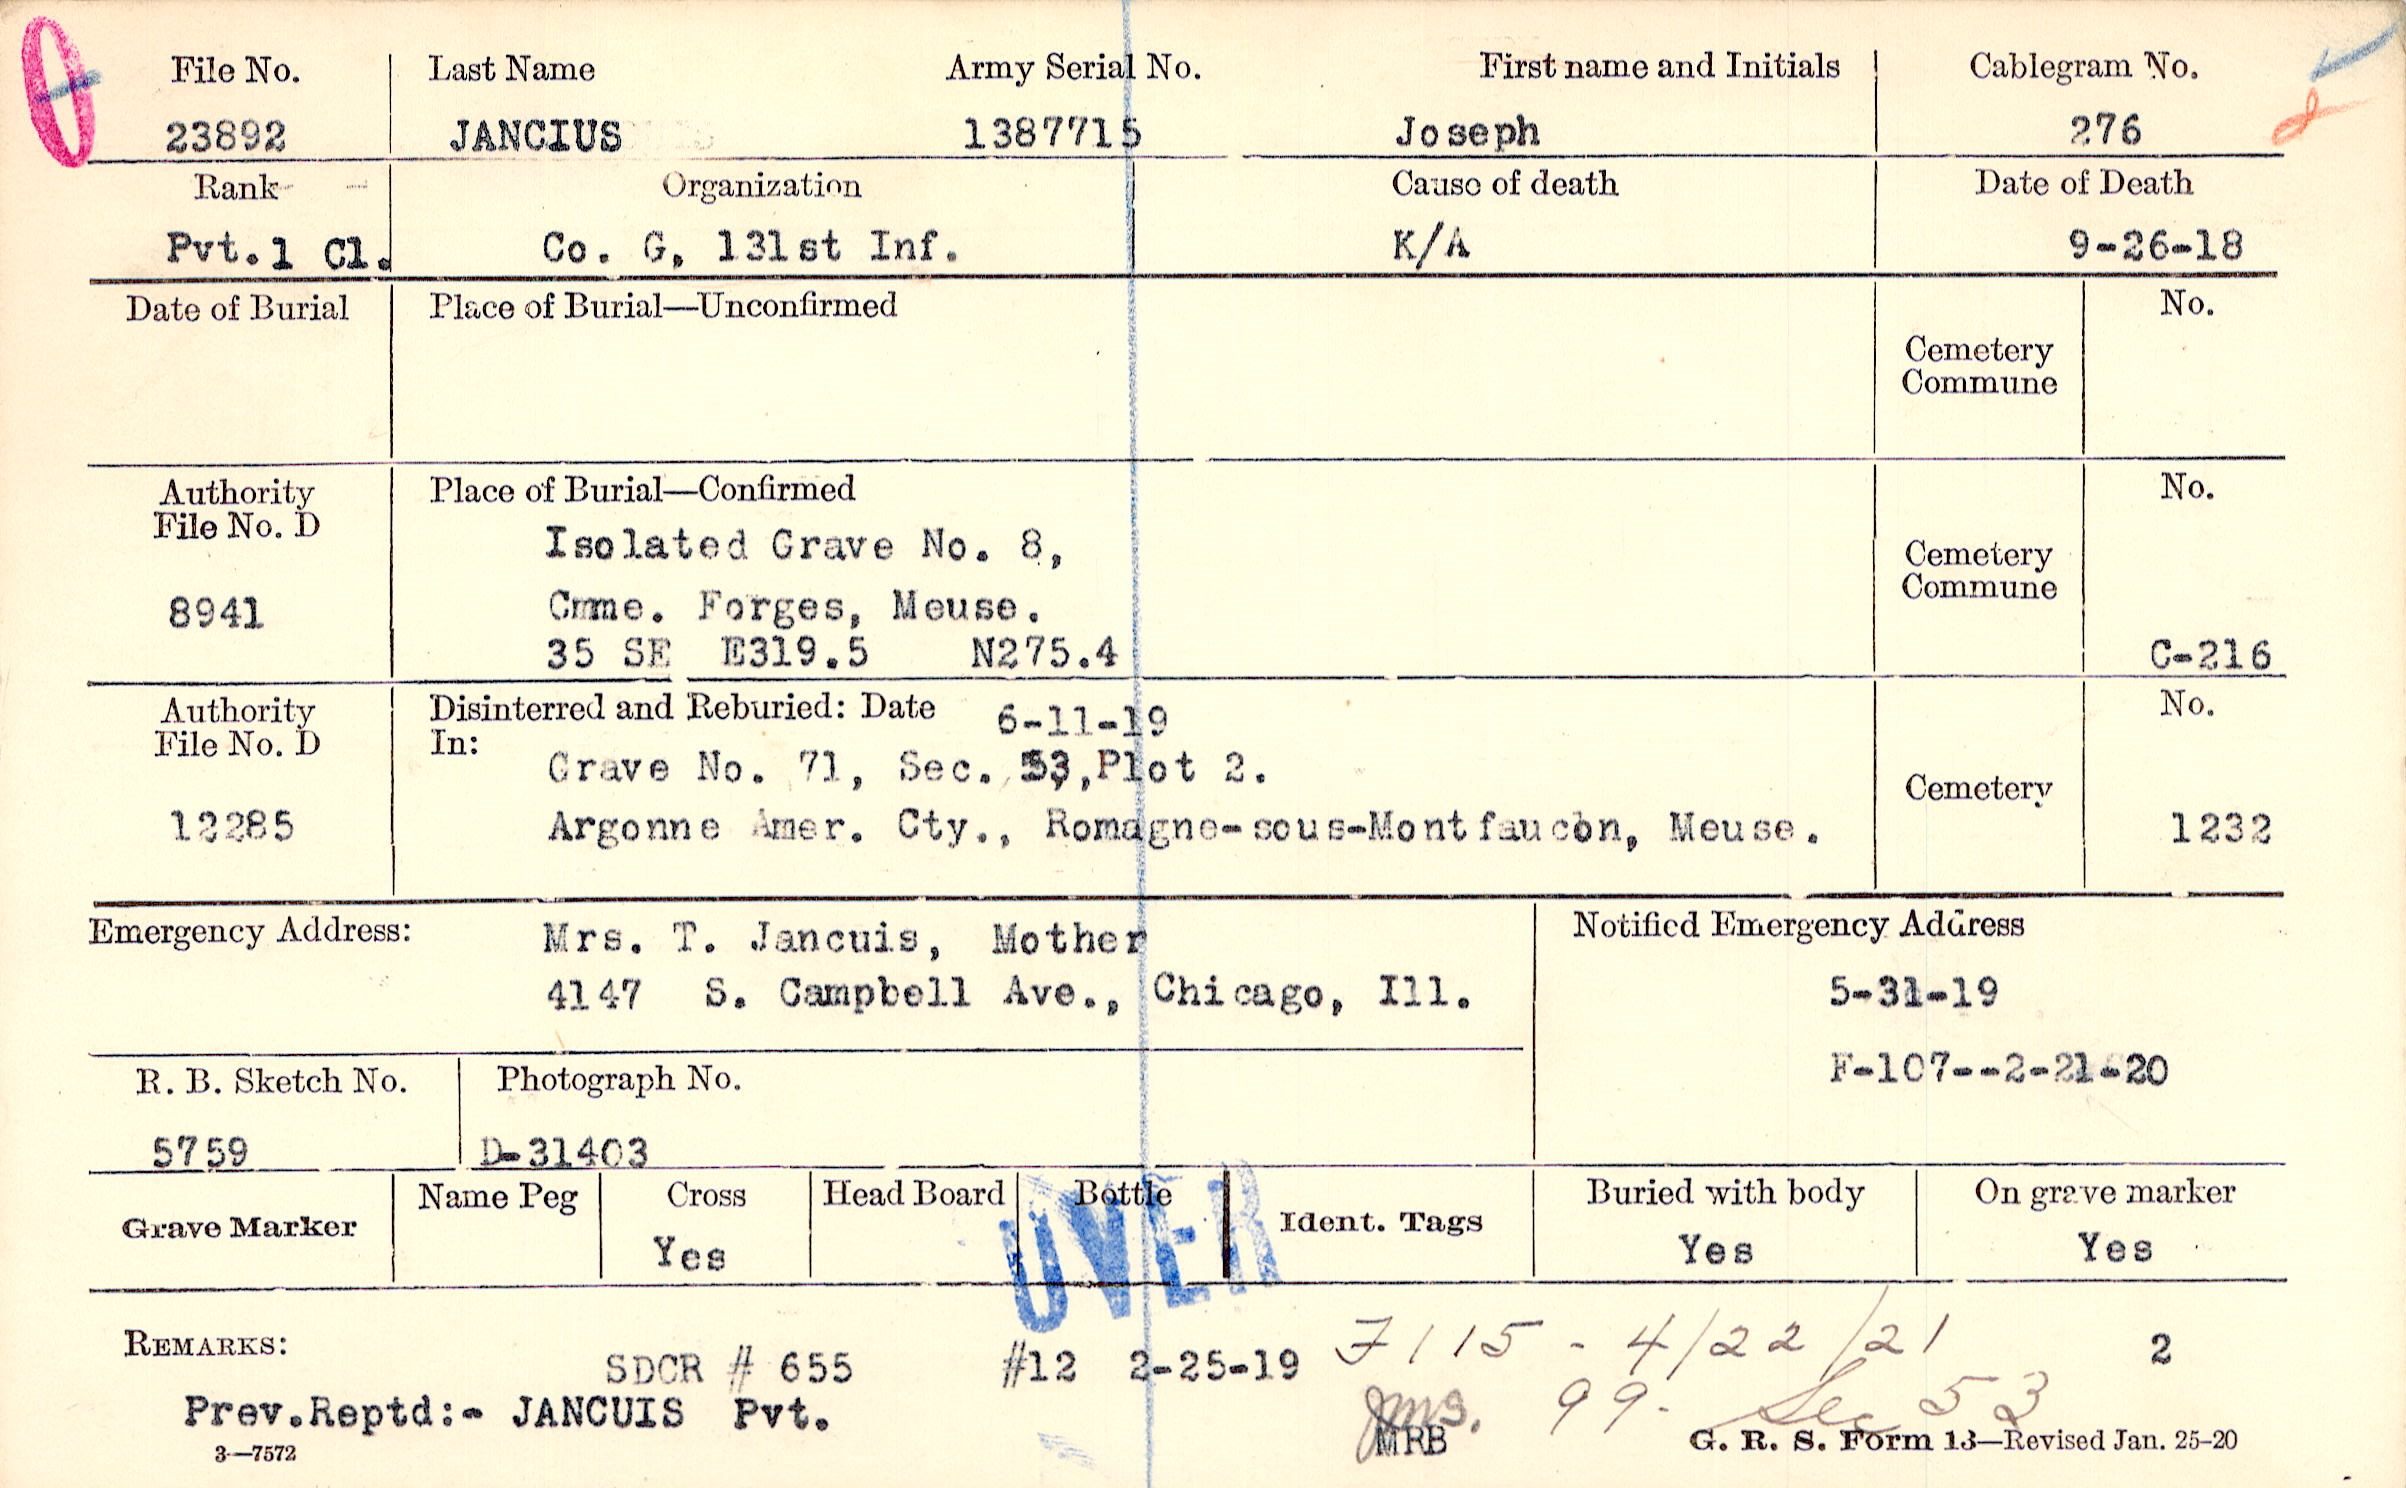 File No. Last Name Army Serial No. First name and Initials Cablegram No.
23892 JANCIUS 1387715 Joseph 276
Rank Organization Cause of death Date of Death
Pvt.1 Cl. Co. G, 131st Inf. K/A 9-26-18
Date of Burial Place of Burial—Unconfirmed No.
Cemetery
Commune
Authority Place of Burial—Confirmed No.
File No. D
Isolated Grave No. 8,
Cemetery
Commune
8941 Cmme. Forges, Meuse.
35 SE E319.5 N275.4 C-216
Authority Disinterred and Reburied: Date 6-11-19 No.
File No. D In:
Grave No. 71, Sec. 53, Plot 2.
Cemetery
12285 Argonne Amer. Cty., Romagne-sous-Montfaucon, Meuse. 1232
Emergency Address: Mrs. T. Jancuis, Mother Notified Emergency Address
4147 S. Campbell Ave., Chicago, Ill. 5-31-19
R. B. Sketch No. Photograph No. F-107--2-21-20
5759 D-31403
Grave Marker Name Peg Cross Head Board Bottle Ident. Tags Buried with body On grave marker
Yes Yes Yes
OVER
REMARKS: SDCR # 655 #12 2-25-19 F115 - 4/22/21 2
Prev.Reptd:- JANCUIS Pvt. Jms. 99- Sec 53
MRB
3—7572 G. R. S. Form 13—Revised Jan. 25-20